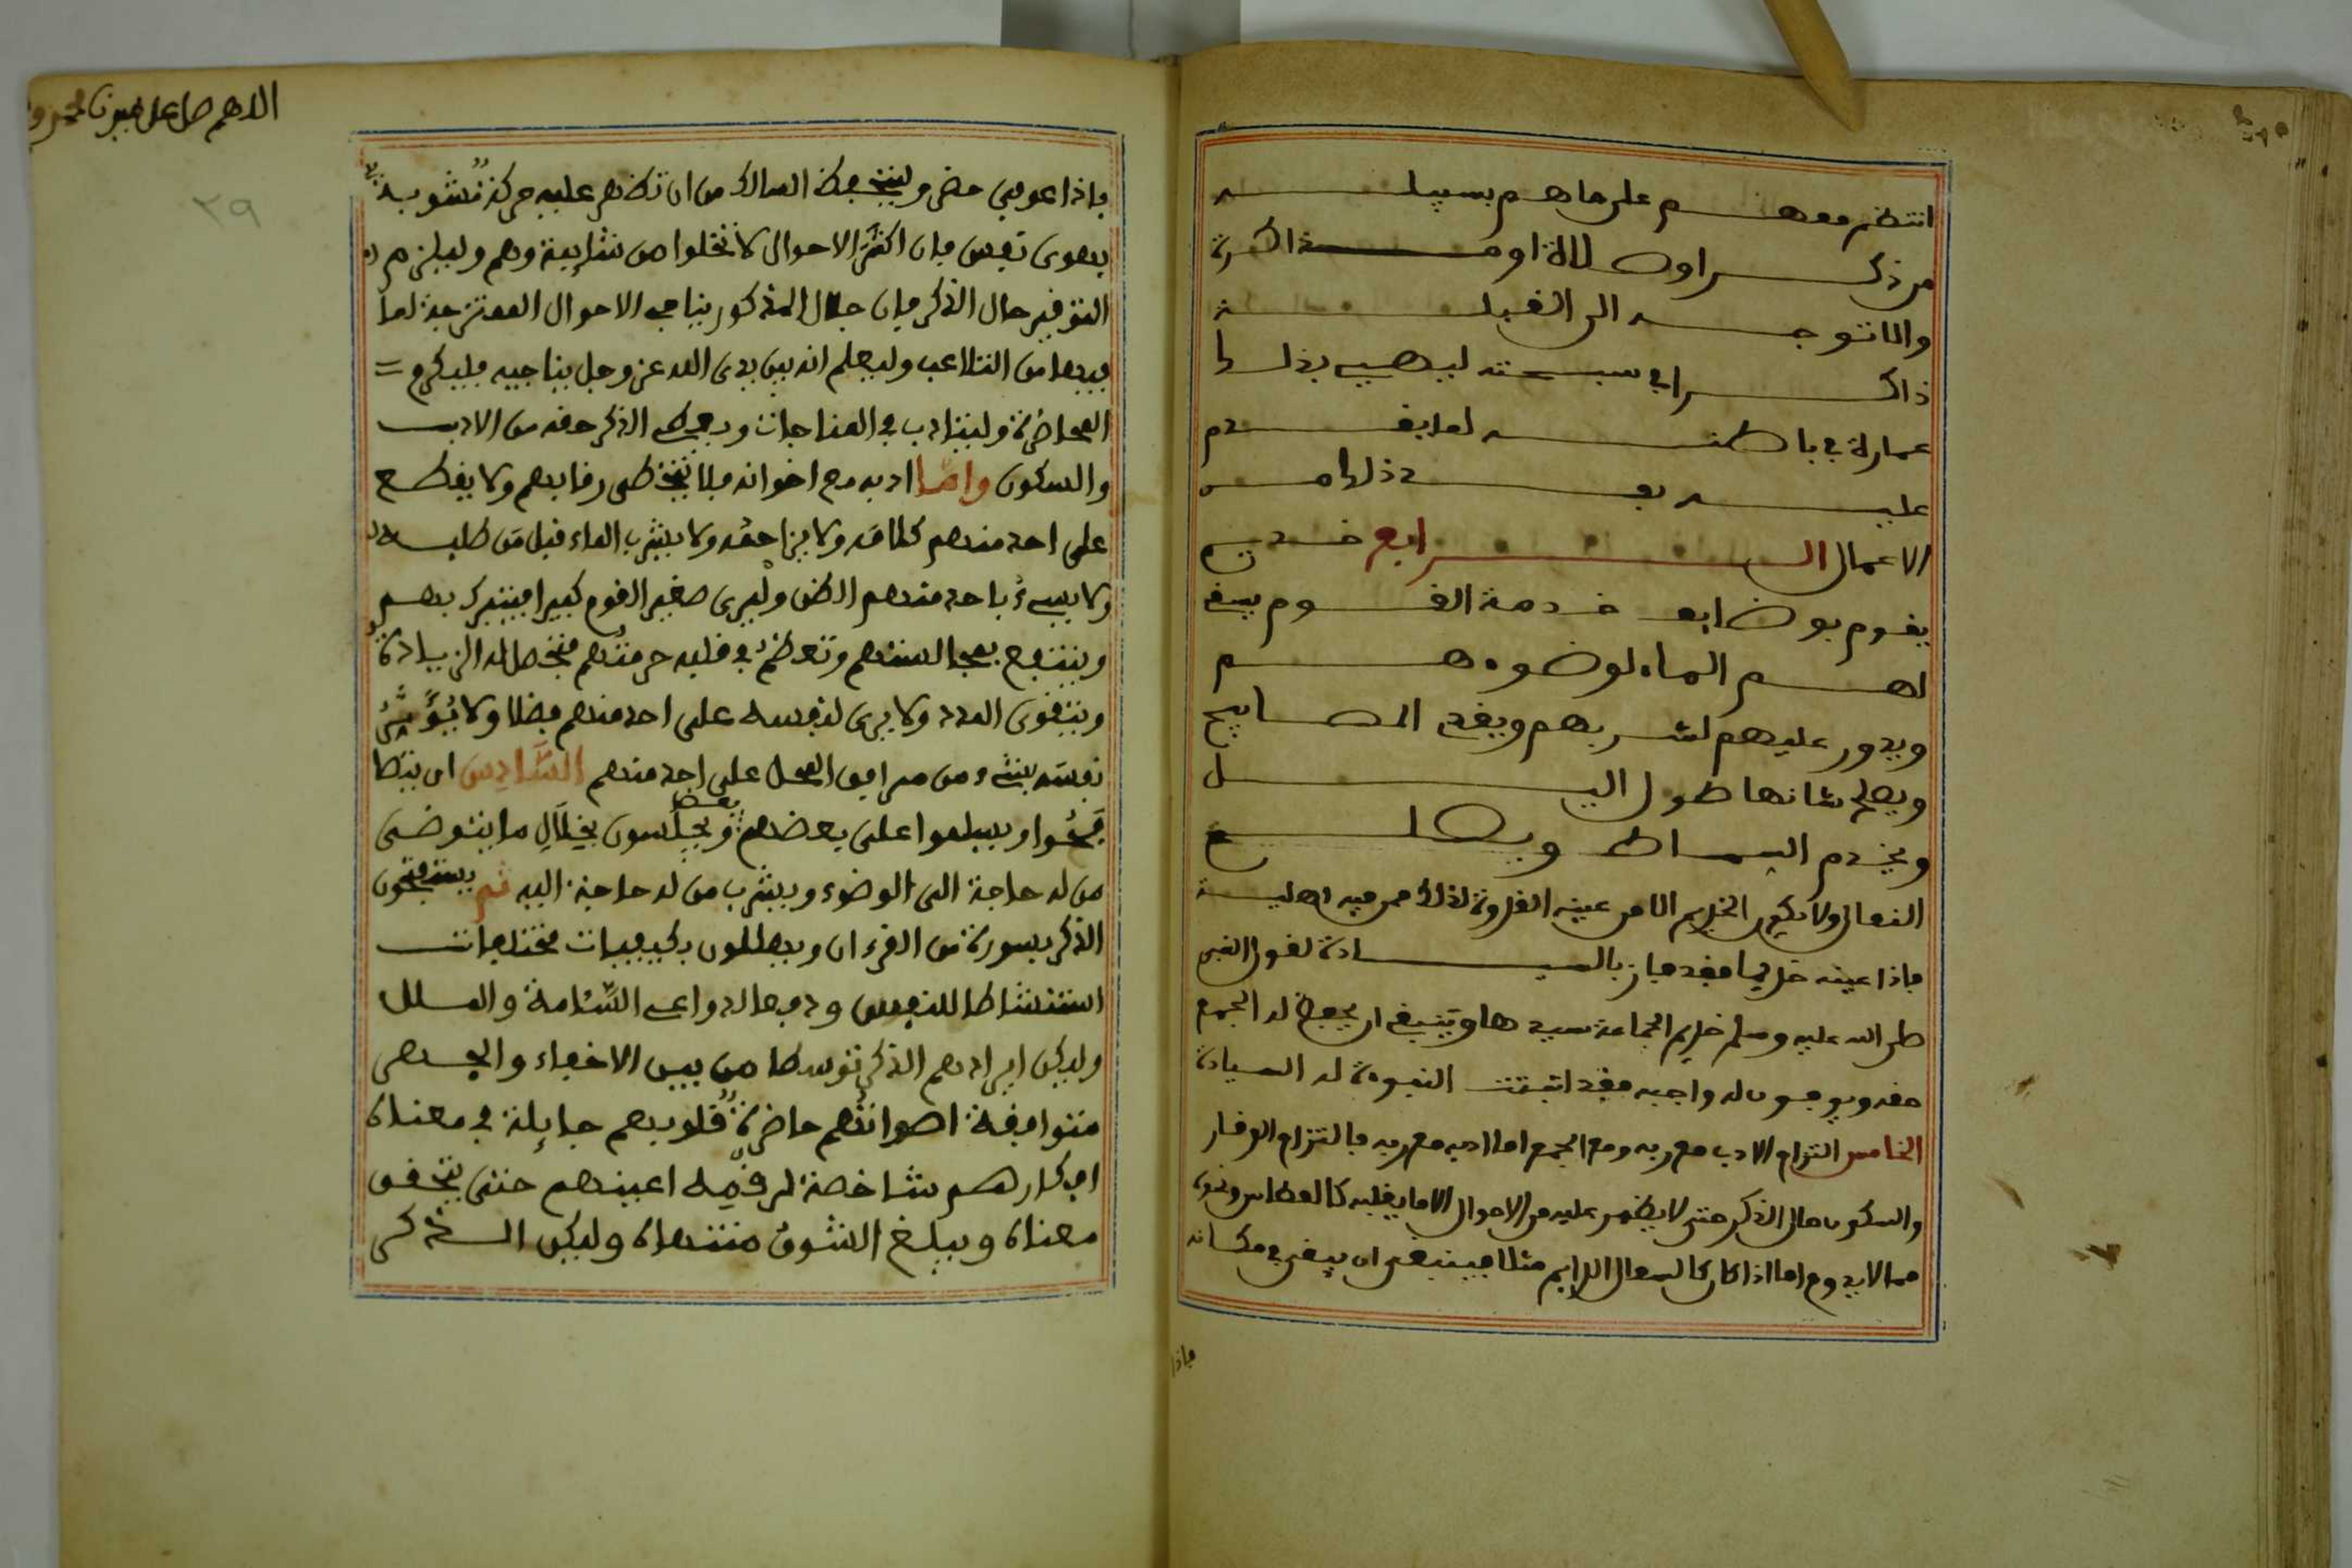 انتظم معهم على ما هم بسبيله
من ذكر او صلاة او مذاكرة
والا توجه الى القبلة
ذاكرا في سبحته ليهيئ بذلك
عمارة في باطنه لما يقدم
عليه بعد ذلك من
الاعمال الرابع خديم
يقوم بوظايف خدمة القوم يسقي
لهم الماء لوضوءهم
ويدور عليهم لشربهم ويقد المصابيح
ويصلح شانها طول اليل
ويخدم البساط ويصلح
النعال ولا يكون الخديم الا من عينه القدوة لذلك ممن فيه اهلية
فاذا عينه خديما فقد فاز بالسيادة لقول النبي
صلى الله عليه وسلم خديم الجماعة سيدها وينبغي ان يحفظ له الجمع
حقه ويوفون له واجبه فقد اثبتت النبوءة له السيادة
الخامس التزام الادب مع ربه ومع الجمع اما ادبه مع ربه فالتزام الوقار
والسكون حال الذكر حتى لا يظهر عليه من الاحوال الا ما يغلبه كالعطاس ونحوه
مما لا يدوم اما اذا كان كالسعال الدايم مثلا فينبغي ان يبقى في مكانه
فاذا
اللاهم صل على سيدنا محمد و
٣٩
فاذا عوفي حضر وليتحفظ السالك من ان تظهر عليه حركة تشوبه
بهوى نفس فان اكثر الاحوال لا تخلوا من شايبة وهم وليلزم
التوقير حال الذكر فان جلال المذكور ينافي الاحوال الممتزجة لما
فيها من التلاعب وليعلم انه بين يدي الله عز وجل يناجيه فليكرم
المحاضرة وليتادب في المناجات ويعط الذكر حقه من الادب
والسكون واما ادبه مع اخوانه فلا يتخطى رقابهم ولا يقطع
على احد منهم كلامه ولا يزاحمه ولا يشرب الماء قبل من طلبه
ولا يسيء باحد منهم الظن وليرى صغير القوم كبيرا فيتبرك بهم
وينتفع بمجالستهم وتعظم في قلبه حرمتهم فتحصل له الزيادة
ويتقوى المدد ولا يرى لنفسه على احد منهم فضلا ولا يؤثر
نفسه بشيء من مرافق المحل على احد منهم السادس ان يتصا
فحوا ويسلموا على بعضهم بعض ويجلسون بخلال ما يتوضى
من له حاجة الى الوضوء ويشرب من له حاجة اليه ثم يستفتحون
الذكر بسورة من القرءان ويهللون بكيفيات مختلفات
استنشاطا للنفس ودفعا لدواعي السئامة والملل
وليكن ايرادهم الذكر توسطا من بين الاخفاء والجهر
متوافقة اصواتهم حاضرة قلوبهم جايلة في معناه
افكارهم شاخصة لرقمه اعينهم حتى يتحقق
معناه ويبلغ الشوق منتهاه وليكن الذكر